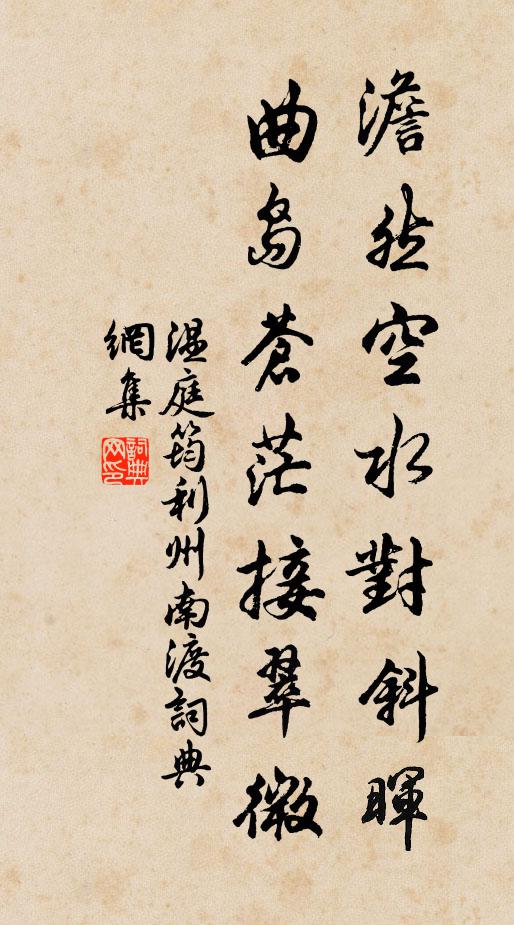 澹然空水對斜暉
曲島蒼茫接翠微
温庭筠利州南渡詞典
網集
詞典
网印